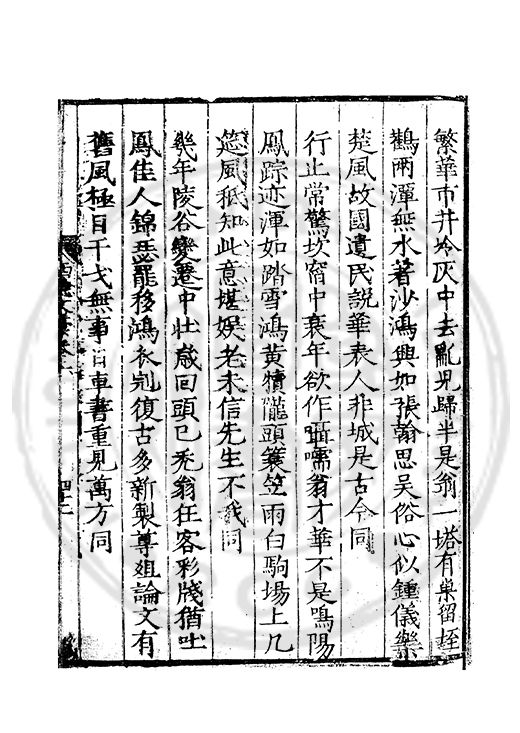 繁華市井冷灰中去亂兒歸半是翁一塔有巢留垤
鸛兩潭無水著沙鴻興如張翰思吳俗心似鍾儀樂
楚風故國遺民說華表人非城是古今同
行止常驚坎窞中衰年欲作囁嚅翁才華不是鳴陽
鳳踪迹渾如踏雪鴻黃犢隴頭簑笠雨白駒場上几
筵風秪知此意堪娛老未信先生不我同
幾年陵谷變遷中壯歲回頭已禿翁任客彩牋猶吐
鳳佳人錦瑟罷移鴻衣冠復古多新製尊俎論文有
舊風極目干戈無事日車書重見萬方同
四十二